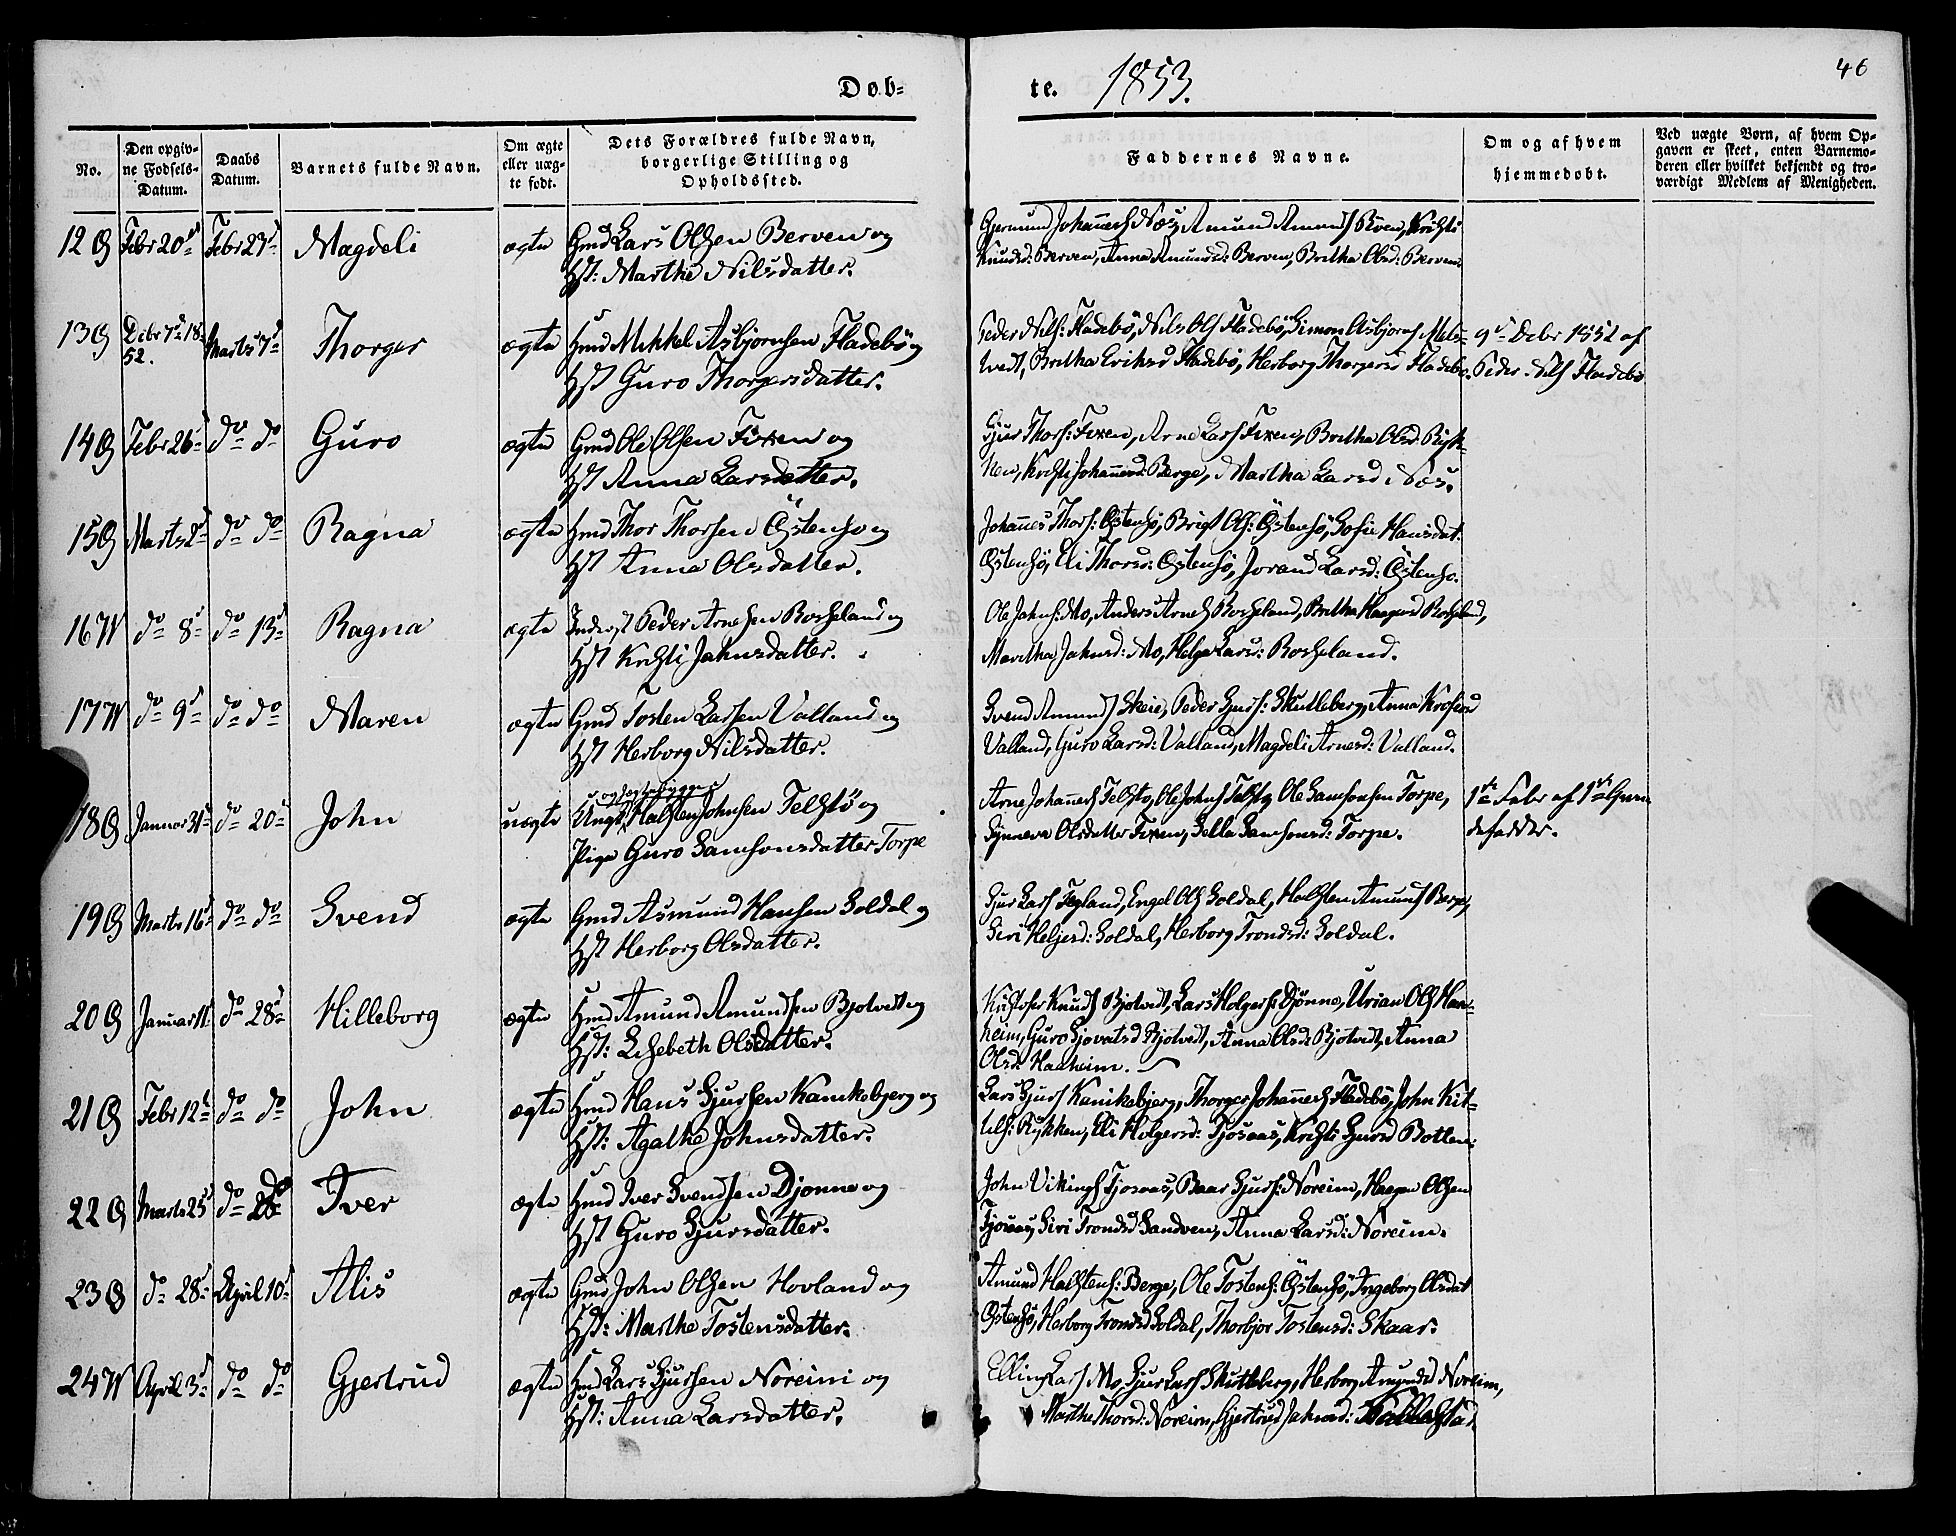 Døb-
te. 1853.
46
No.
Den opgiv-
ne Fødsels-
Datum.
Daabs
Datum.
Barnets fulde Navn.
Om ægte
eller uæg-
te født.
Dets Forældres fulde Navn,
borgerlige Stilling og
Opholdssted.
Faddernes Navne.
Om og af hvem
hjemmedøbt.
Ved uægte Børn, af hvem Op-
gaven er skeet, enten Barnemo-
deren eller hvilket bekjendt og tro-
værdigt Medlem af Menigheden.
12 Ø Febr 20de Febr 27d Magdeli ægte Gmd Lars Olsen Berven og
Hst: Marthe Nilsdatter.
Gjermund Johannes Næs, Amund Amunds Berven, Kristi
Knudsd: Berven, Anna Amundsd: Berven, Britha Olsd: Berven.
13 Ø Debr 7d 18
52. Marts 7d Thorger ægte Hmd Mikkel Asbjørnsen Fladebø og
Hst Guro Thorgersdatter.
Peder Nils: Fladebø, Nils Ols Fladebø, Simon Asbjørns Mels-
tvedt, Britha Eriksd Fladebø, Herborg Thorgersd Fladebø.
9d Debr 1852 af
Peder Nils Fladebø
14 Ø Febr 26d do do Guro ægte Gmd Ole Olsen Fixen og
Hst Anna Larsdatter.
Gjur Thors: Fixen, Arne Lars Fixen, Britha Olsd: Ryk-
ken, Kristi Johannesd: Berge, Martha Larsd Næs.
15 Ø Marts 2d do do Ragna ægte Hmd Thor Thorsen Østensø og
Hst Anna Olsdatter.
Johannes Thors: Østensø, Brigt Ols: Østensø, Sofie Hansdat:
Østensø, Eli Thorsd: Østensø, Jorand Larsd: Østensø.
16 W do 8d do 13d Ragna ægte Inderst Peder Arnesen Rosseland og
Hst Kristi Jahnsdatter.
Ole Jahns: Mo, Anders Arnes Rosseland, Britha Haagensd Rosseland,
Maritha Jahnsd: Mo, Helga Larsd: Rosseland.
17 W do 9d do do Maren ægte Gmd Tosten Larsen Valland og
Hst Herborg Nilsdatter.
Svend Amunds Skeie, Peder Gjurs: Skutleberg, Anna
Valland, Guro Larsd: Valland, Magdeli Arnesd: Valland.
18 Ø Januar 31d do 20d John uægte Ungk Halsten Johnsen Telstø og
Pige Guro Samsonsdatter Torpe
Arne Johannes Telstø, Ole Johns Telstø, Ole Samsonsen Torpe,
Synneva Olsdatter Fixen, Sella Samsonsd: Torpe.
1ste Febr af 1ste Gaven
defadder.
19 Ø Marts 16d do do Svend ægte Gmd Asmund Hansen Soldal og
Hst Herborg Olsdatter.
Gjur Lars Tegland, Engel Ols Soldal, Halsten Amunds Berge,
Siri Helgesd: Soldal, Herborg Trondsd: Soldal.
20 Ø Januar 11 do 28d Hilleborg ægte Hmd Amund Amundsen Bjotvedt og
Hst: Lisebeth Olsdatter.
Kristofer Knuds Bjotvedt, Lars Holgers: Djønne, Urian Ols Haa-
heim, Guro Sjovatsd Bjotvedt, Anna Olsd: Bjotvedt, Anna
Olsd: Haaheim.
21 Ø Febr 12d do do John ægte Hmd Hans Gjursen Kanikebjerg og
Hst: Agathe Johnsdatter.
Lars Gjurs Kanikebjerg, Thorger Johannes Fladebø, John Kit-
tels: Rykken, Eli Holgersd: Tjosaas, Kristi Gjursd Botten.
22 Ø Marts 25d do do Iver ægte Hmd Iver Svendsen Djønne og
Hst Guro Gjursdatter.
John Vikings Tjosaas, Baar Gjurs: Noreim, Haagen Olsen
Tjosaas, Siri Trondsd Sandven, Anna Larsd: Noreim.
23 Ø do 28d April 10d Alis ægte Gmd John Olsen Hovland og
Hst: Marthe Tostensdatter.
Amund Halstens: Berge, Ole Tostens: Østensø, Ingeborg Olsdat
Østensø, Herborg Trondsd Soldal, Thorbjor Tostensd: Skaar.
24 W April 3d do do Gjertrud ægte Hmd Lars Gjursen Noreim og
Hst: Anna Larsdatter.
Elling Lars Mo, Gjur Lars Skutleberg, Herborg Amundsd Noreim,
Marthe Thorsd: Noreim, Gjertrud Jahnsd: